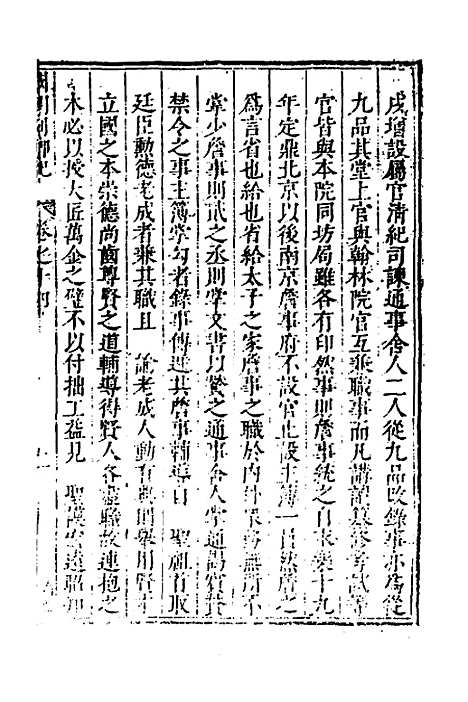 戌增設屬官清紀司諫通事舍人二人從九品以錄事亦爲從
九品其堂上官與翰林院官互兼職事而凡講讀纂修考試等
官皆與本院同坊局雖各有印然事則詹事統之自永樂十九
年定鼎北京以後南京詹事府不設官止設主簿一員然詹之
爲言省也給也省給太子之家詹事之職於內外眾務無所不
掌少詹事則貳之丞則掌文書以贊之通事舍人掌通謁賓贊
禁令之事主簿掌勾省錄事傳遞其詹事輔導
聖祖首取
廷臣勳德老成者兼其職且 諭老成人動有
則舉用賢
立國之本崇德尚齒尊賢之道輔導得賢人各盡職故連抱之
木必以授大匠萬金之璧不以付拙工益見 聖謨
遠
卷之十四